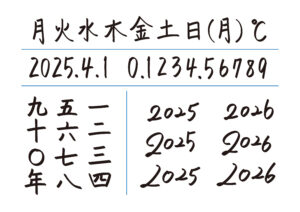 月火水木金土日(月)℃
2025.4.1 0.123456789
一二三四
五六七八
九十〇年
2025 2026
2025 2026
2025 2026